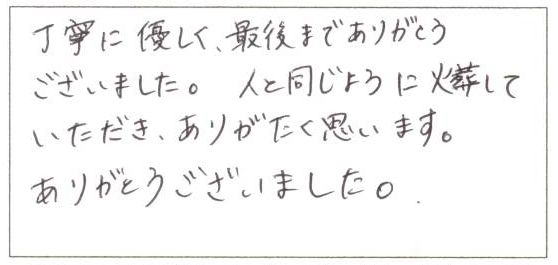 丁寧に優しく、最後までありがとう
ございました。 人と同じように火葬して
いただき、ありがたく思います。
ありがとうございました。